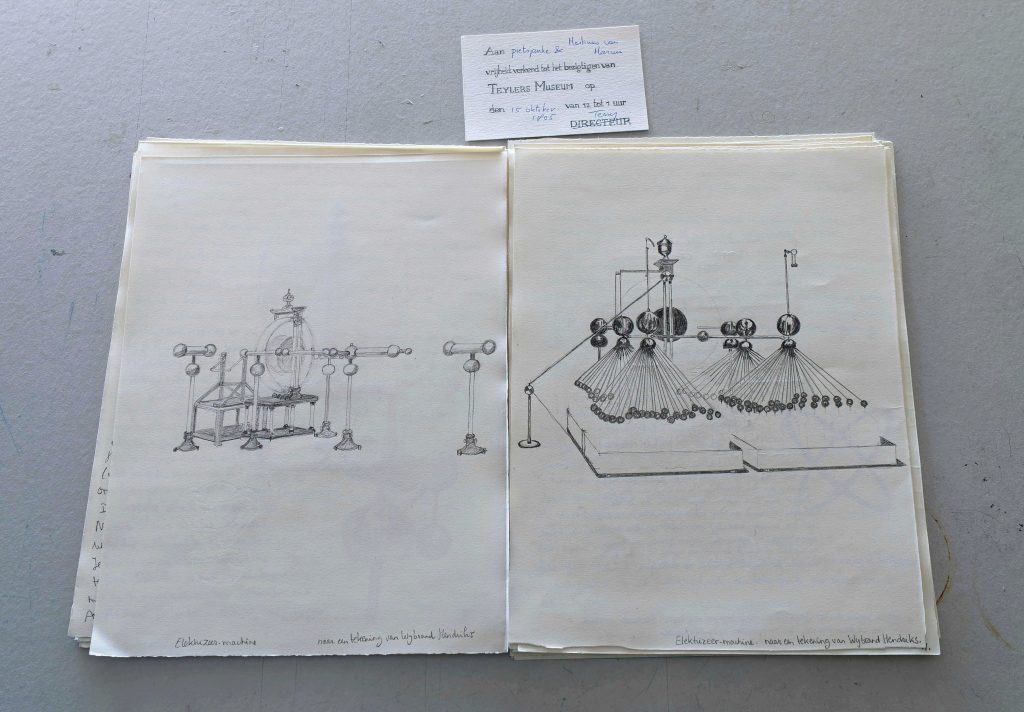 Aan pietsjanke & Martinus van
Marum
vrijheid verleend tot het bezigtigen van
TEYLERS MUSEUM op
den 15 oktober van 12 tot 1 uur
1805
DIRECTEUR
Elektrizeer-machine naar een tekening van Wybrand Hendriks
Elektrizeer-machine. naar een tekening van Wybrand Hendriks.